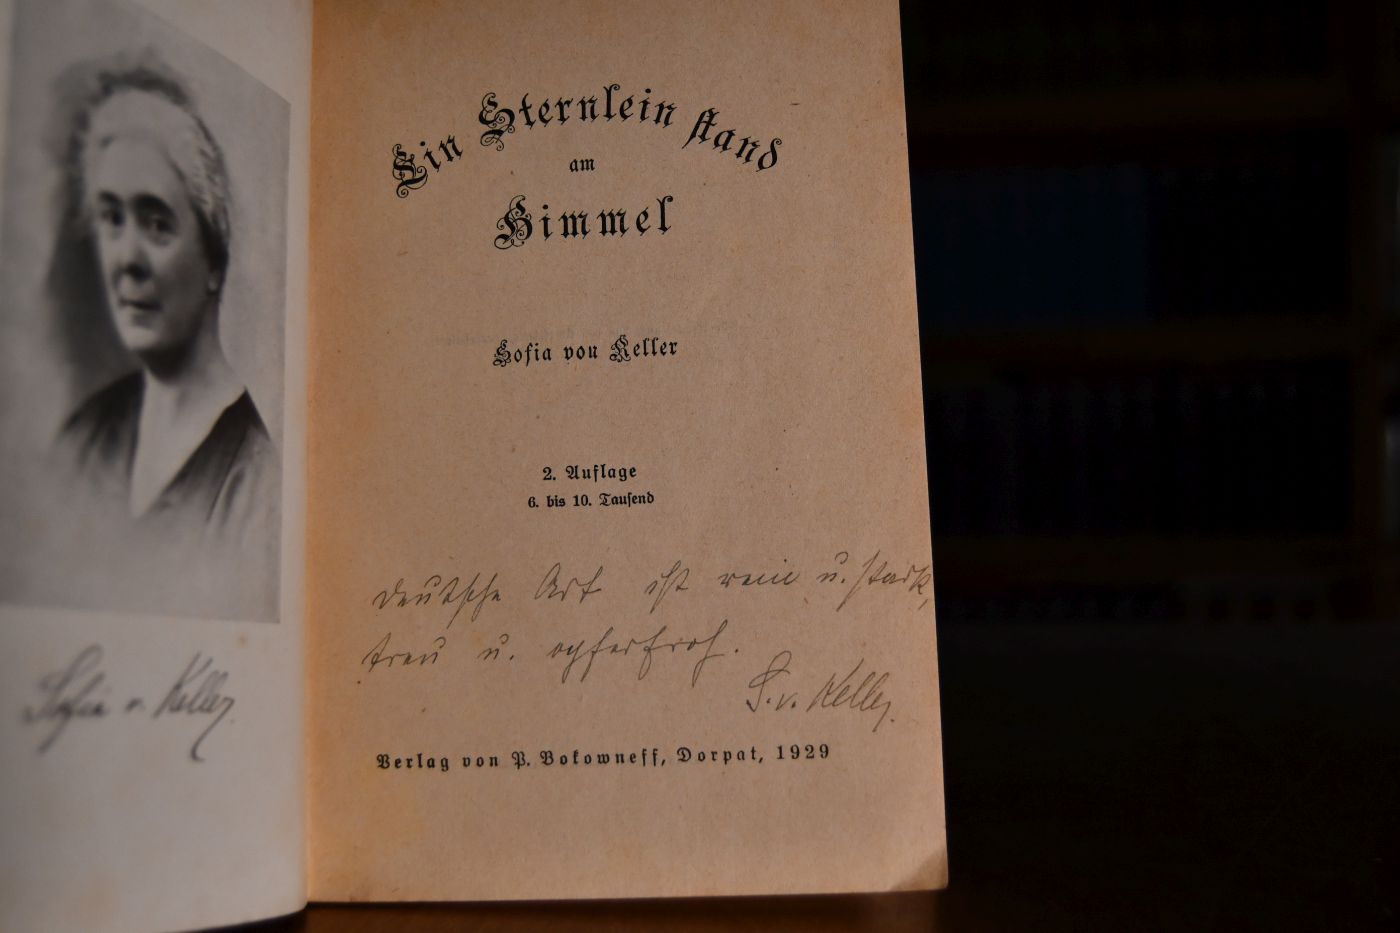 Sofia v. Keller
Ein Sternlein stand
am
Himmel
Sofia von Keller
2. Auflage
6. bis 10. Tausend
Deutsche Art ist rein u. stark,
treu u. opferfroh.
S. v. Keller.
Verlag von P. Bokowneff, Dorpat, 1929